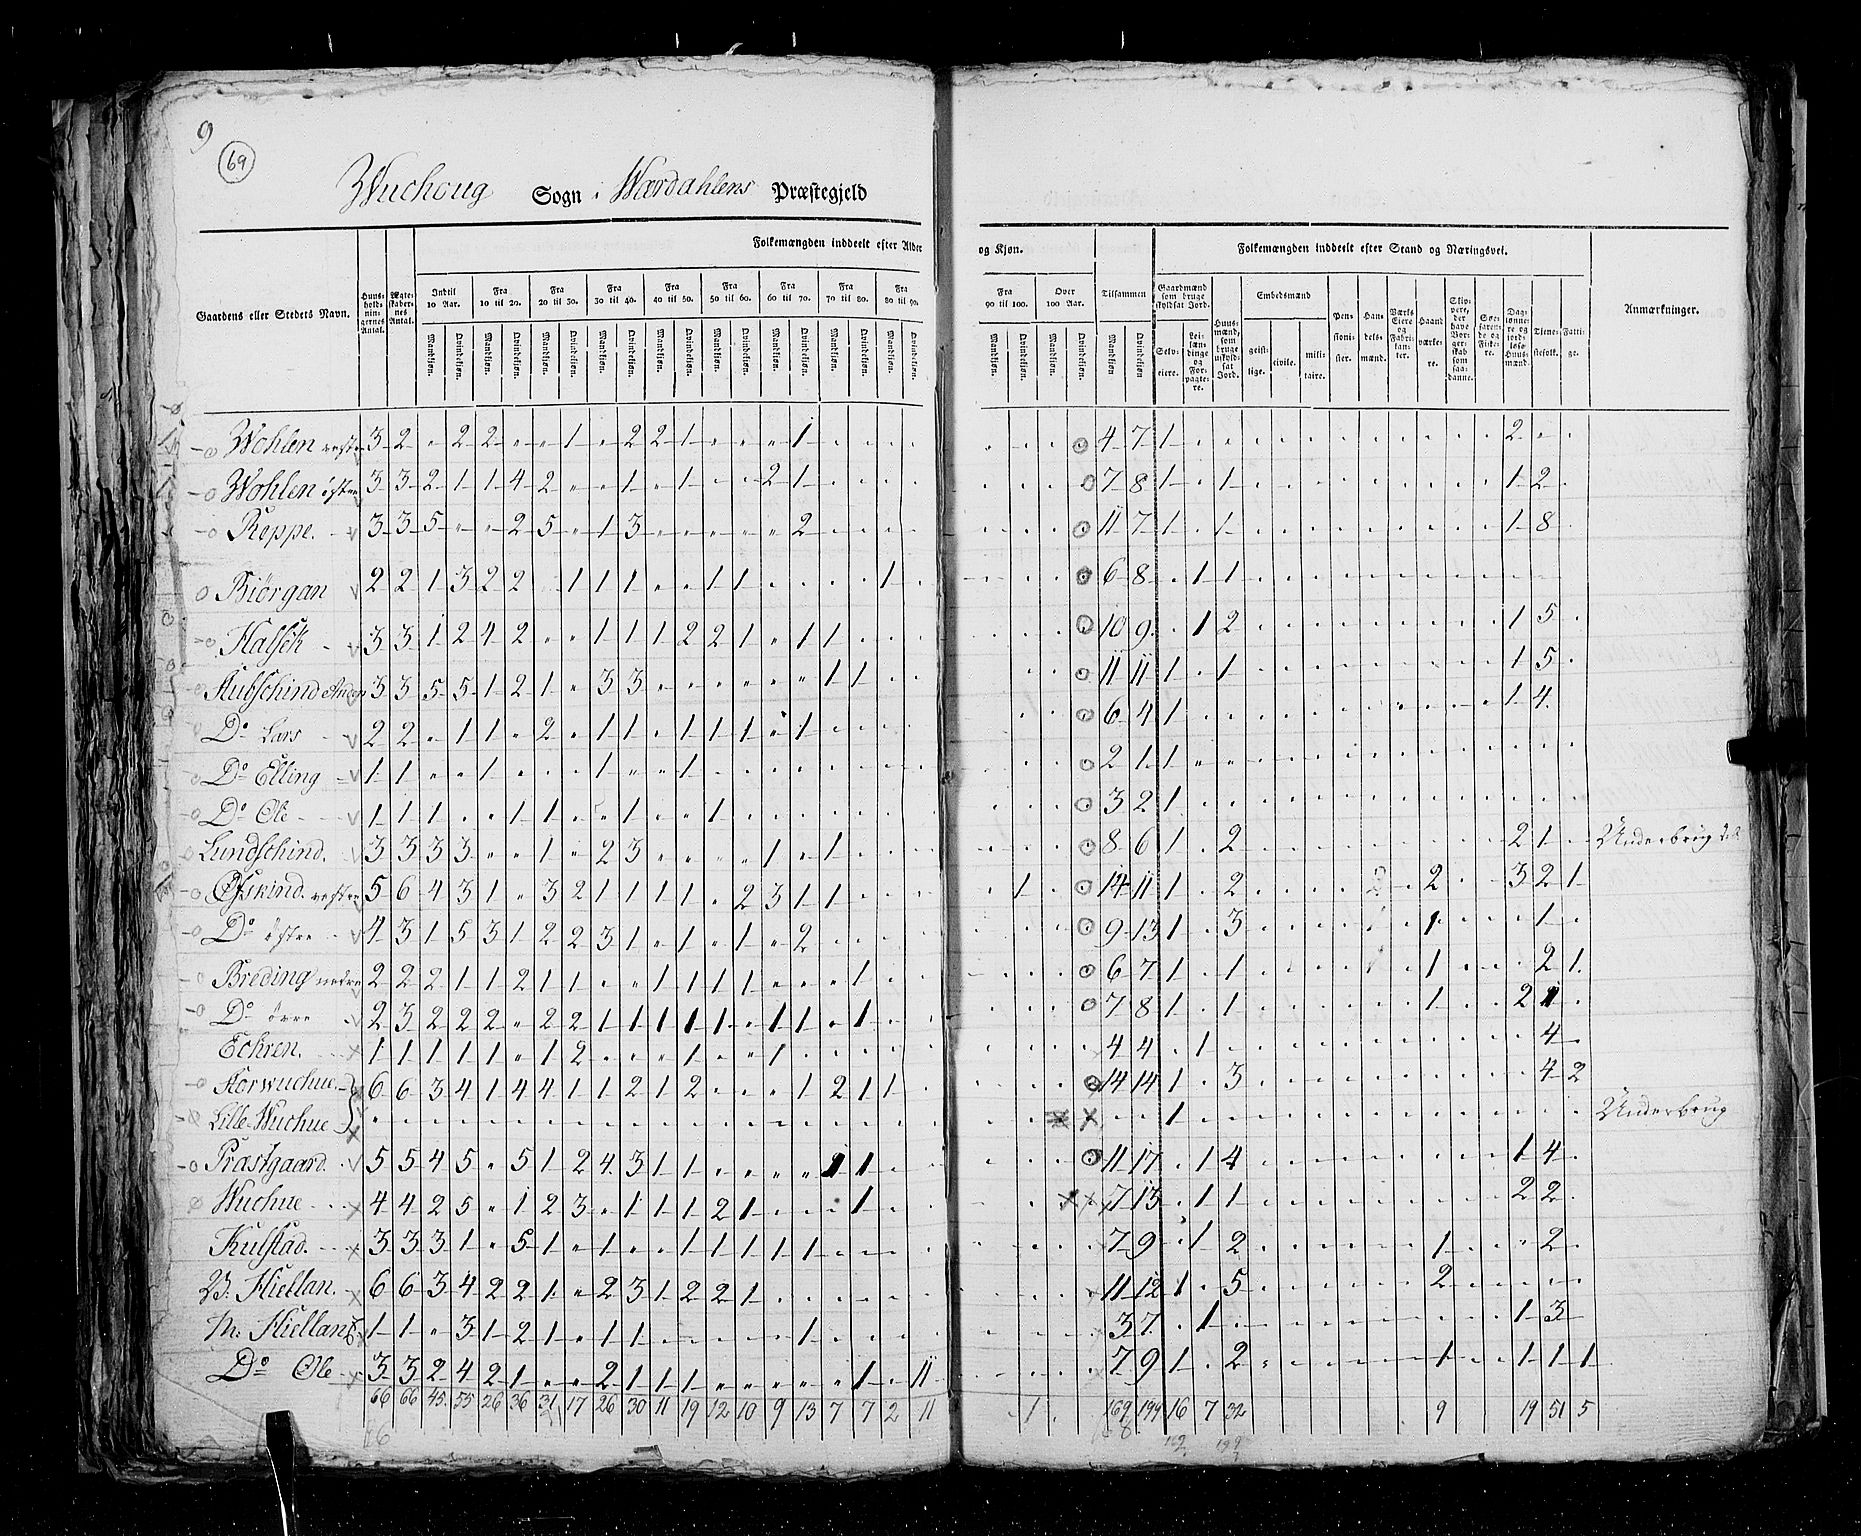 9
69
Wuchoug Sogn i Wærdahlens Præstegjeld
Folkemængden inddeelt efter Alder og Kjøn. Folkemængden inddeelt efter Stand og Næringsvei.
Gaardens eller Stedets Navn. Huus-holdningernes Antal. Ægteskabernes Antal. Indtil 10 Aar. Fra 10 til 20. Fra 20 til 30. Fra 30 til 40. Fra 40 til 50. Fra 50 til 60. Fra 60 til 70. Fra 70 til 80. Fra 80 til 90. Fra 90 til 100. Over 100 Aar. Tilsammen Gaardmænd som bruge skyldsat Jord. Embedsmænd Anmærkninger.
Mandkjøn. Qvindekjøn.
Selveiere. geistlige. civile. militaire. Pensionister. Handelsmænd. Haandværkere. Tjenestefolk. Fattige.
Wohlen vestre 3 2 2 2 1 2 2 1 1 4 7 1 2
Wohlen østre 3 3 2 1 1 4 2 1 1 2 1 7 8 1 1 1 2
Reppe. 3 3 5 2 5 1 3 2 11 7 1 1 1 8
Biörgan 2 2 1 3 2 2 1 1 1 1 1 1 6 8 1 1
Halsek 3 3 1 2 4 2 1 1 1 2 2 1 1 1 10 9 1 2 1 5
3 3 5 5 1 2 1 3 3 1 1 11 11 1 1 1 5
Do Lars 2 2 1 1 2 1 1 1 1 1 1 6 4 1 1 4
Do Elling 1 1 1 1 1 2 1 1
Do Ole 1 1 1 1 1 1 1 3 2 1
Lundskind. 3 3 3 3 1 2 3 1 1 8 6 1 2 2 1 Underbrug
Øfskind vestre 5 6 4 3 1 3 2 1 1 1 1 2 3 1 1 1 14 11 1 2 2 3 2 1
Do østre 4 3 1 5 3 1 2 2 3 1 1 1 2 9 13 1 3 1 1
Breding nedre 2 2 2 1 1 2 1 1 1 1 1 1 1 6 7 1 1 1 2 1
Do övre 2 3 2 2 2 2 2 1 1 1 1 1 1 1 1 7 8 1 1 1 2 1
Eckren. 1 1 1 1 1 1 2 1 1 4 4 1 4
Storwuchue 6 6 3 4 1 4 4 1 1 2 1 2 1 2 1 1 14 14 1 3 4 2
Lille Wuchue 1 Underbrug
Præstgaard. 5 5 4 5 5 1 2 4 3 1 1 1 1 11 17 1 4 1 4
Wuchue 4 4 2 5 1 2 3 1 1 1 2 1 1 7 13 1 1 2 2
Kulstad. 3 3 3 1 5 1 1 1 1 1 1 1 7 9 1 2 1 2
V. Hiellan. 6 6 3 4 2 2 1 2 3 1 2 2 1 11 12 1 5 2
M. Hiellan 1 1 3 1 2 1 1 1 1 3 7 1 1 3
Do Ole 3 3 2 4 2 1 2 1 1 1 1 11 7 9 1 2 1 1 1 1
66 66 45 55 26 36 31 17 26 30 11 19 12 10 9 13 7 7 2 11 1 169 199 16 7 32 9 19 51 5